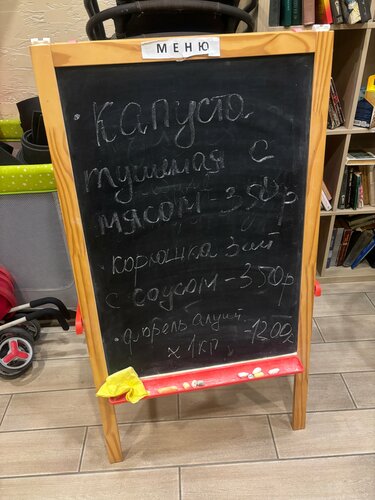 МЕНЮ
• капуста
тушеная с
мясом - 350р
• корюшка 3 шт
с соусом - 350р
• форель алуш
х 1 кг. - 1200